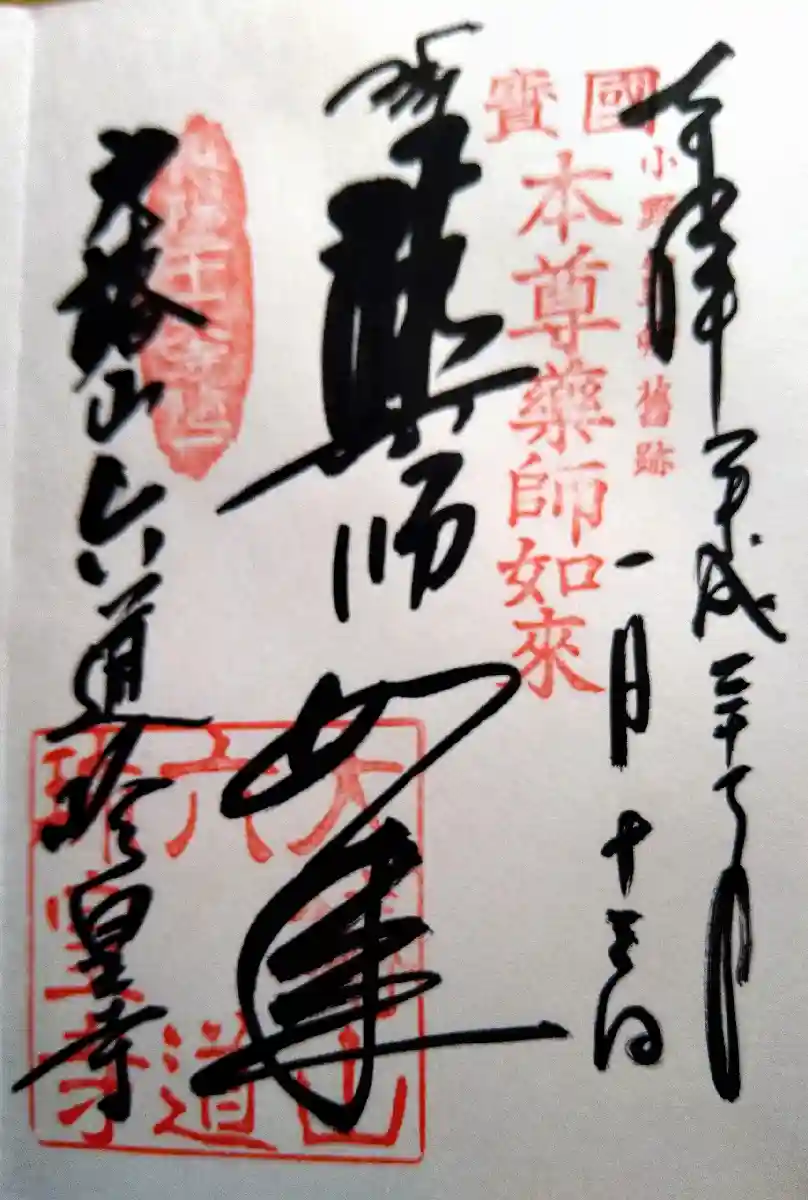 奉拝 平成二十七年
一月十三日
小野篁卿舊跡
國寳
本尊藥師如來
薬師如来
大椿山 六道珍皇寺
大椿山
六道
珍皇寺